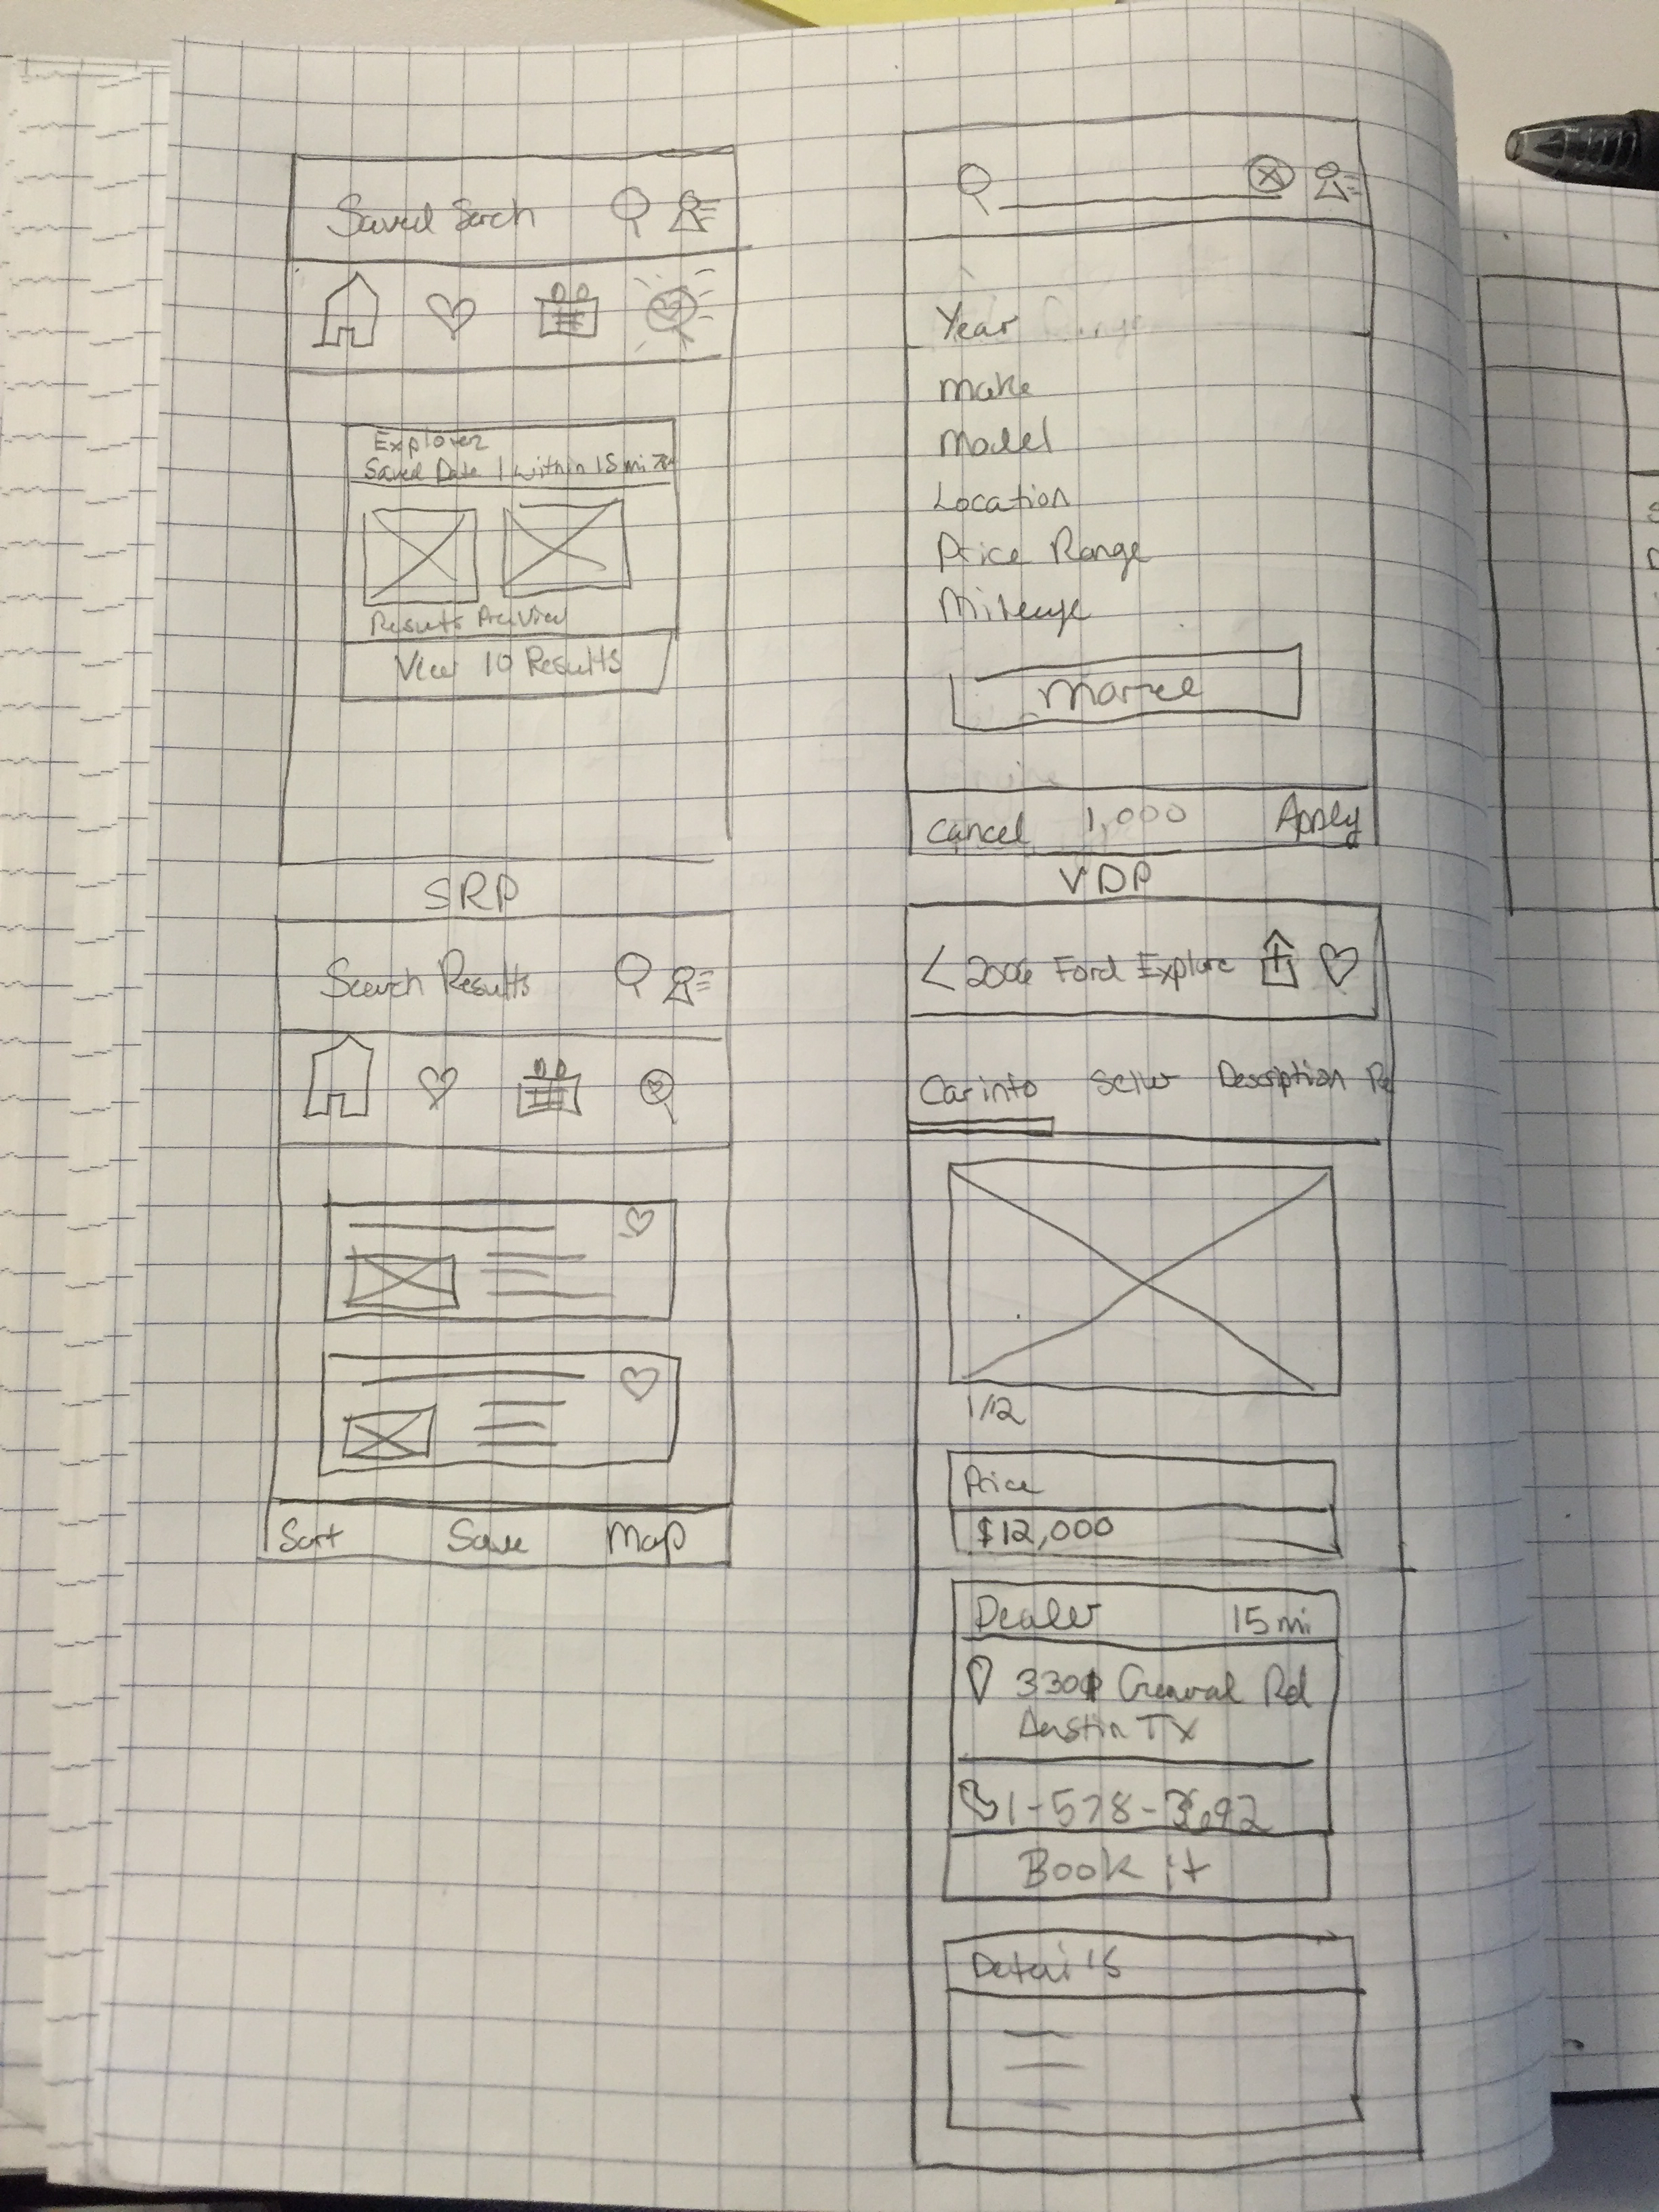 Saved Serch
Explorer
Saved Date | within 15 mi
Results Preview
View 10 Results
Year
Make
Model
Location
Price Range
Mileage
Cancel 1,000 Apply
SRP
Search Results
Sort Save Map
VDP
< 2006 Ford Explore
Car info Seller Description Re
1/12
Price
$12,000
Dealer 15 mi
Rd
Austin TX
1-578-3692
Book it
Details